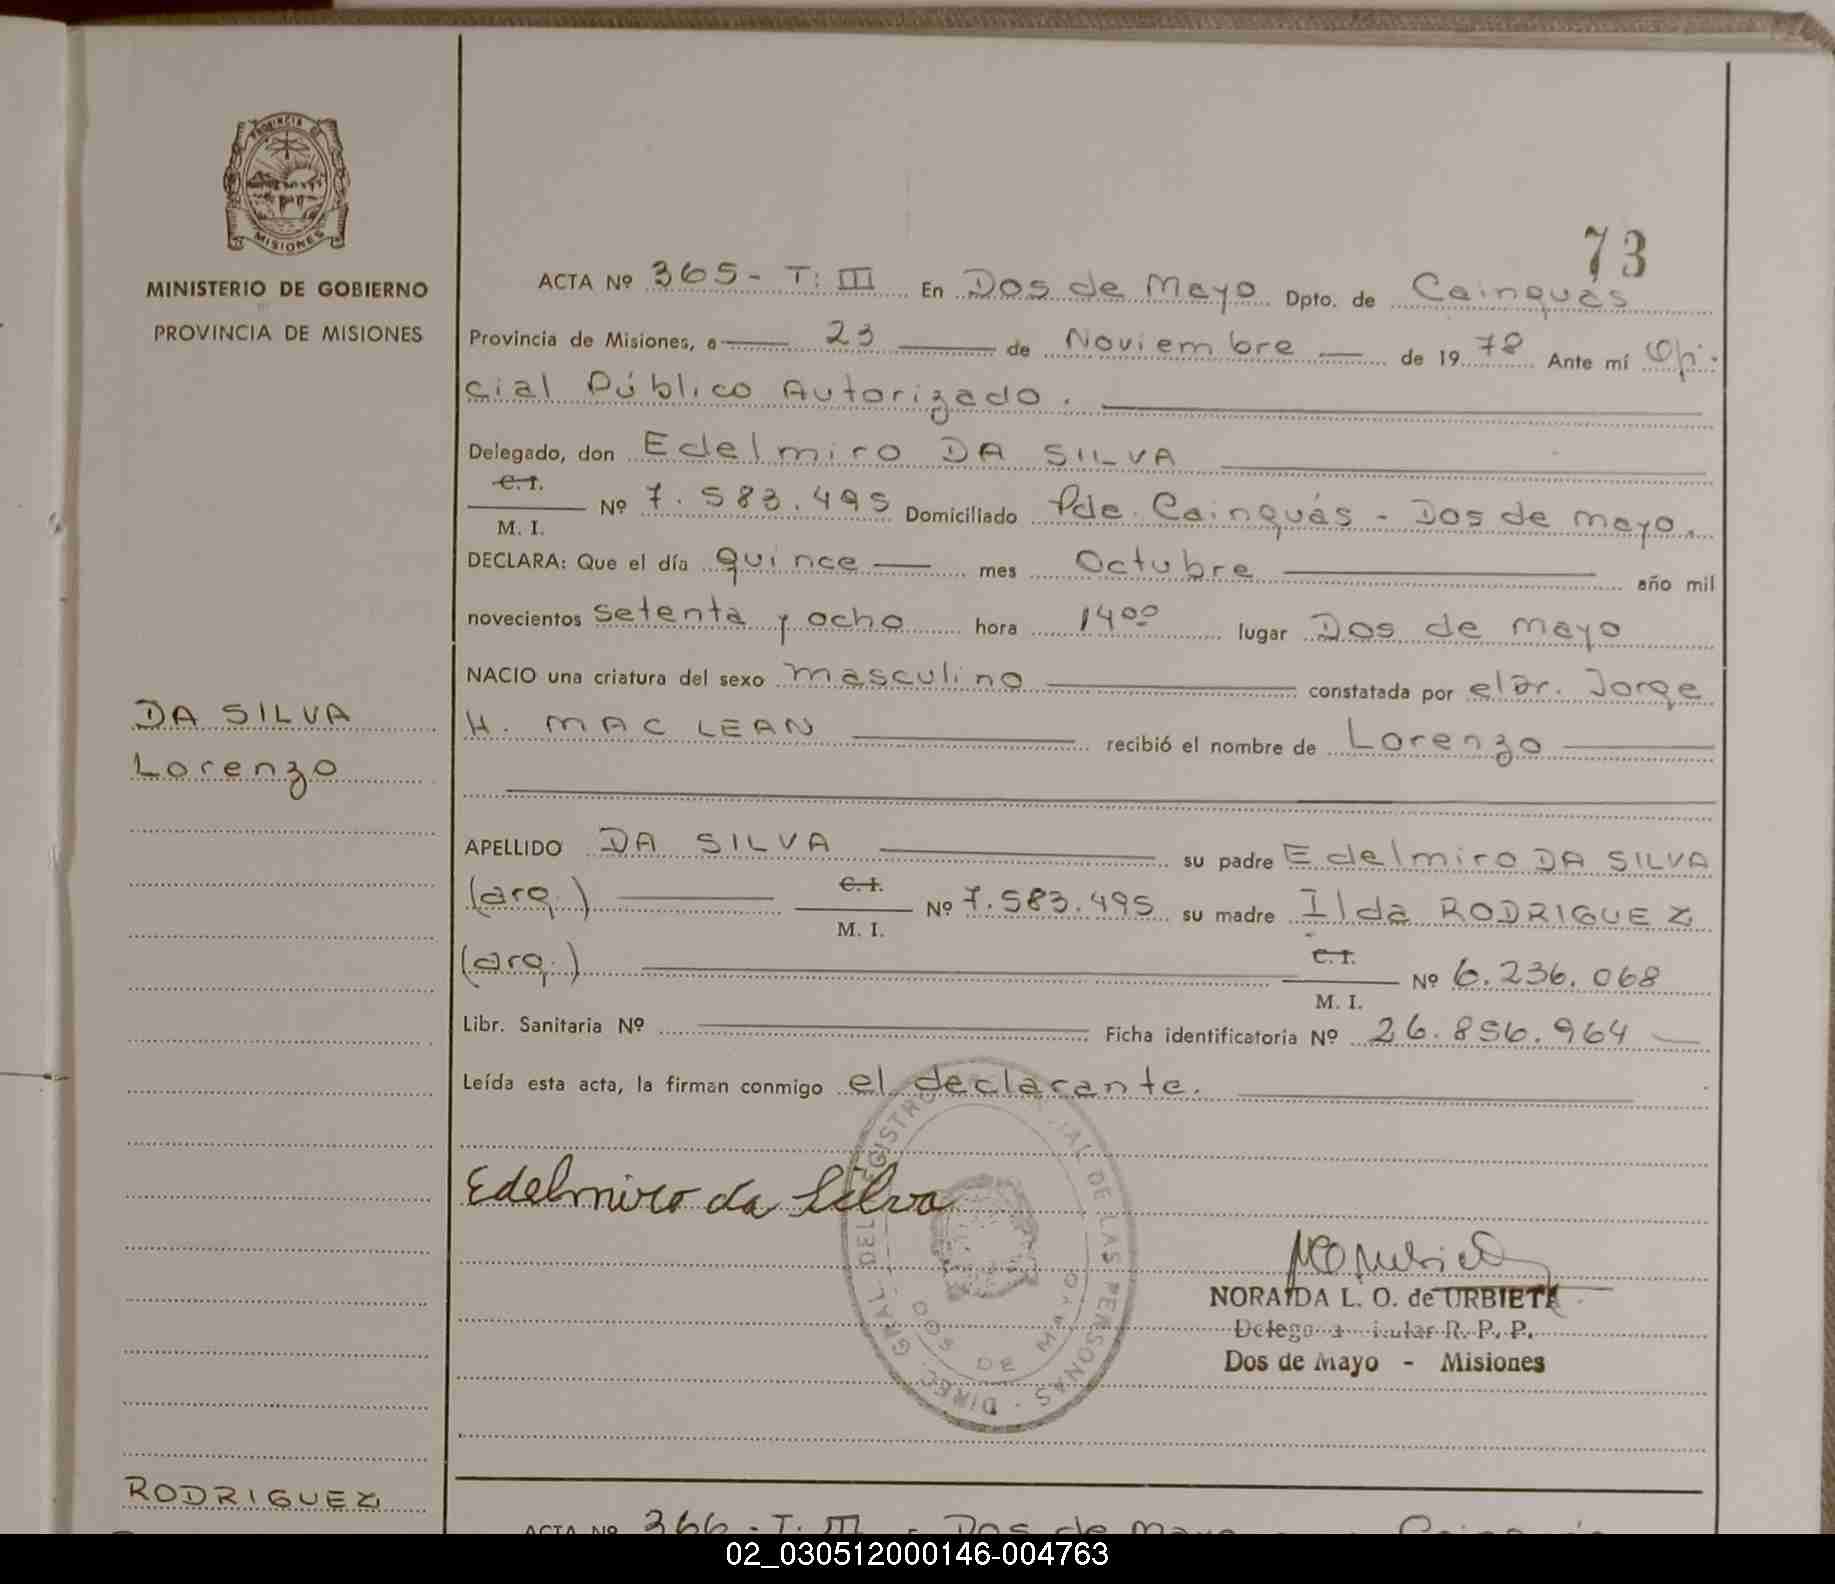 PROVINCIA DE
MISIONES
MINISTERIO DE GOBIERNO
PROVINCIA DE MISIONES
73
ACTA Nº 365 - T: III En Dos de Mayo Dpto. de Cainguás
Provincia de Misiones, a 23 de Noviembre de 19 78 Ante mí Ofi-
cial Público Autorizado.
Delegado, don Edelmiro DA SILVA
C.I.
M. I. Nº 7.583.495 Domiciliado Pde. Cainguás - Dos de mayo.
DECLARA: Que el día quince mes Octubre año mil
novecientos setenta y ocho hora 14ºº lugar Dos de mayo
NACIO una criatura del sexo masculino constatada por el Dr. Jorge
H. MAC LEAN recibió el nombre de Lorenzo
DA SILVA
Lorenzo
APELLIDO DA SILVA su padre Edelmiro DA SILVA
(arg.) C.I.
M. I. Nº 7.583.495 su madre Ilda RODRIGUEZ
(arg.) C.I.
M. I. Nº 6.236.068
Libr. Sanitaria Nº Ficha identificatoria Nº 26.856.964
Leída esta acta, la firman conmigo el declarante.
Edelmiro da Silva
DIREC. GRAL. DEL REGISTRO DE LAS PERSONAS
DOS DE MAYO
NORAIDA L. O. de URBIETA
R. P. P.
Dos de Mayo - Misiones
RODRIGUEZ
ACTA Nº 366 - T. III Dos de Mayo
02_030512000146-004763